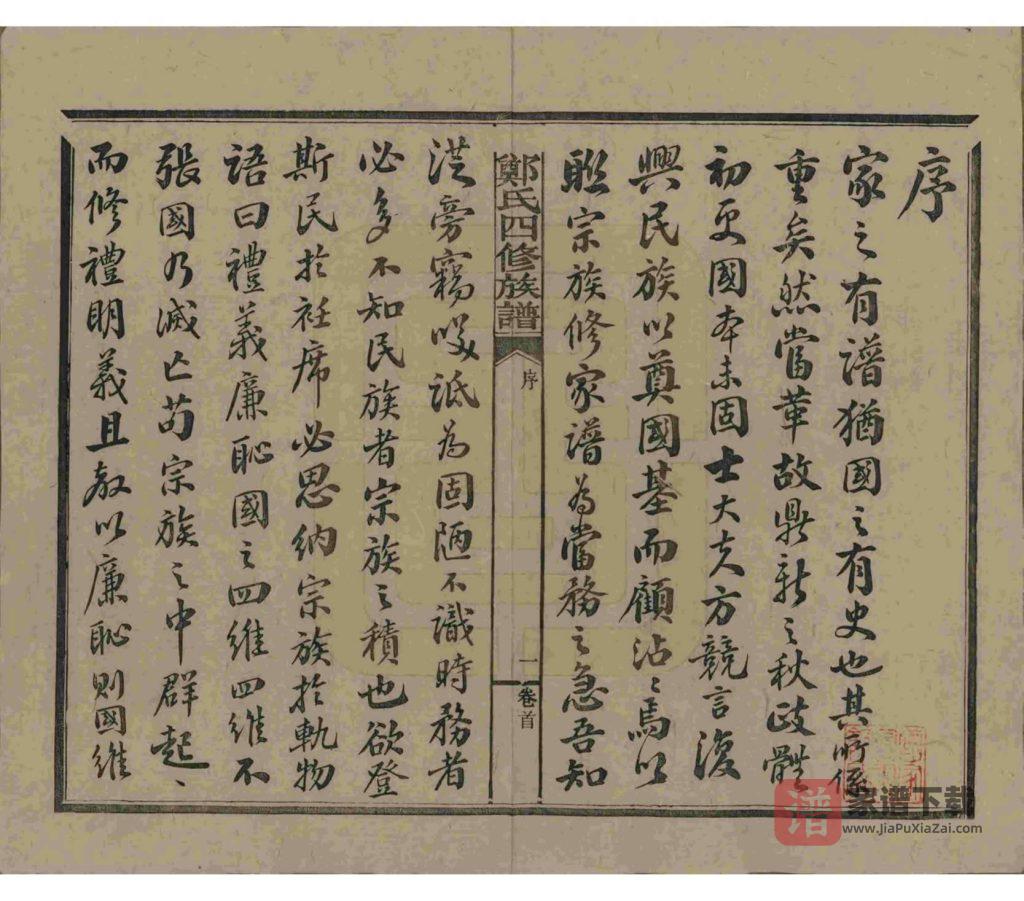 序
家之有譜猶國之有史也其所係
重矣然當革故鼎新之秋政體
初更國本未固士大夫方競言復
興民族以奠國基而顧沾沾焉以
聯宗族修家譜為當務之急吾知
鄭氏四修族譜
序
一
卷首
從旁竊笑詆為固陋不識時務者
必多不知民族者宗族之積也欲登
斯民於衽席必思納宗族於軌物
語曰禮義廉恥國之四維四維不
張國乃滅亡苟宗族之中群起
而修禮明義且教以廉恥則國維
谱
家谱下载
www.JiaPuXiaZai.com